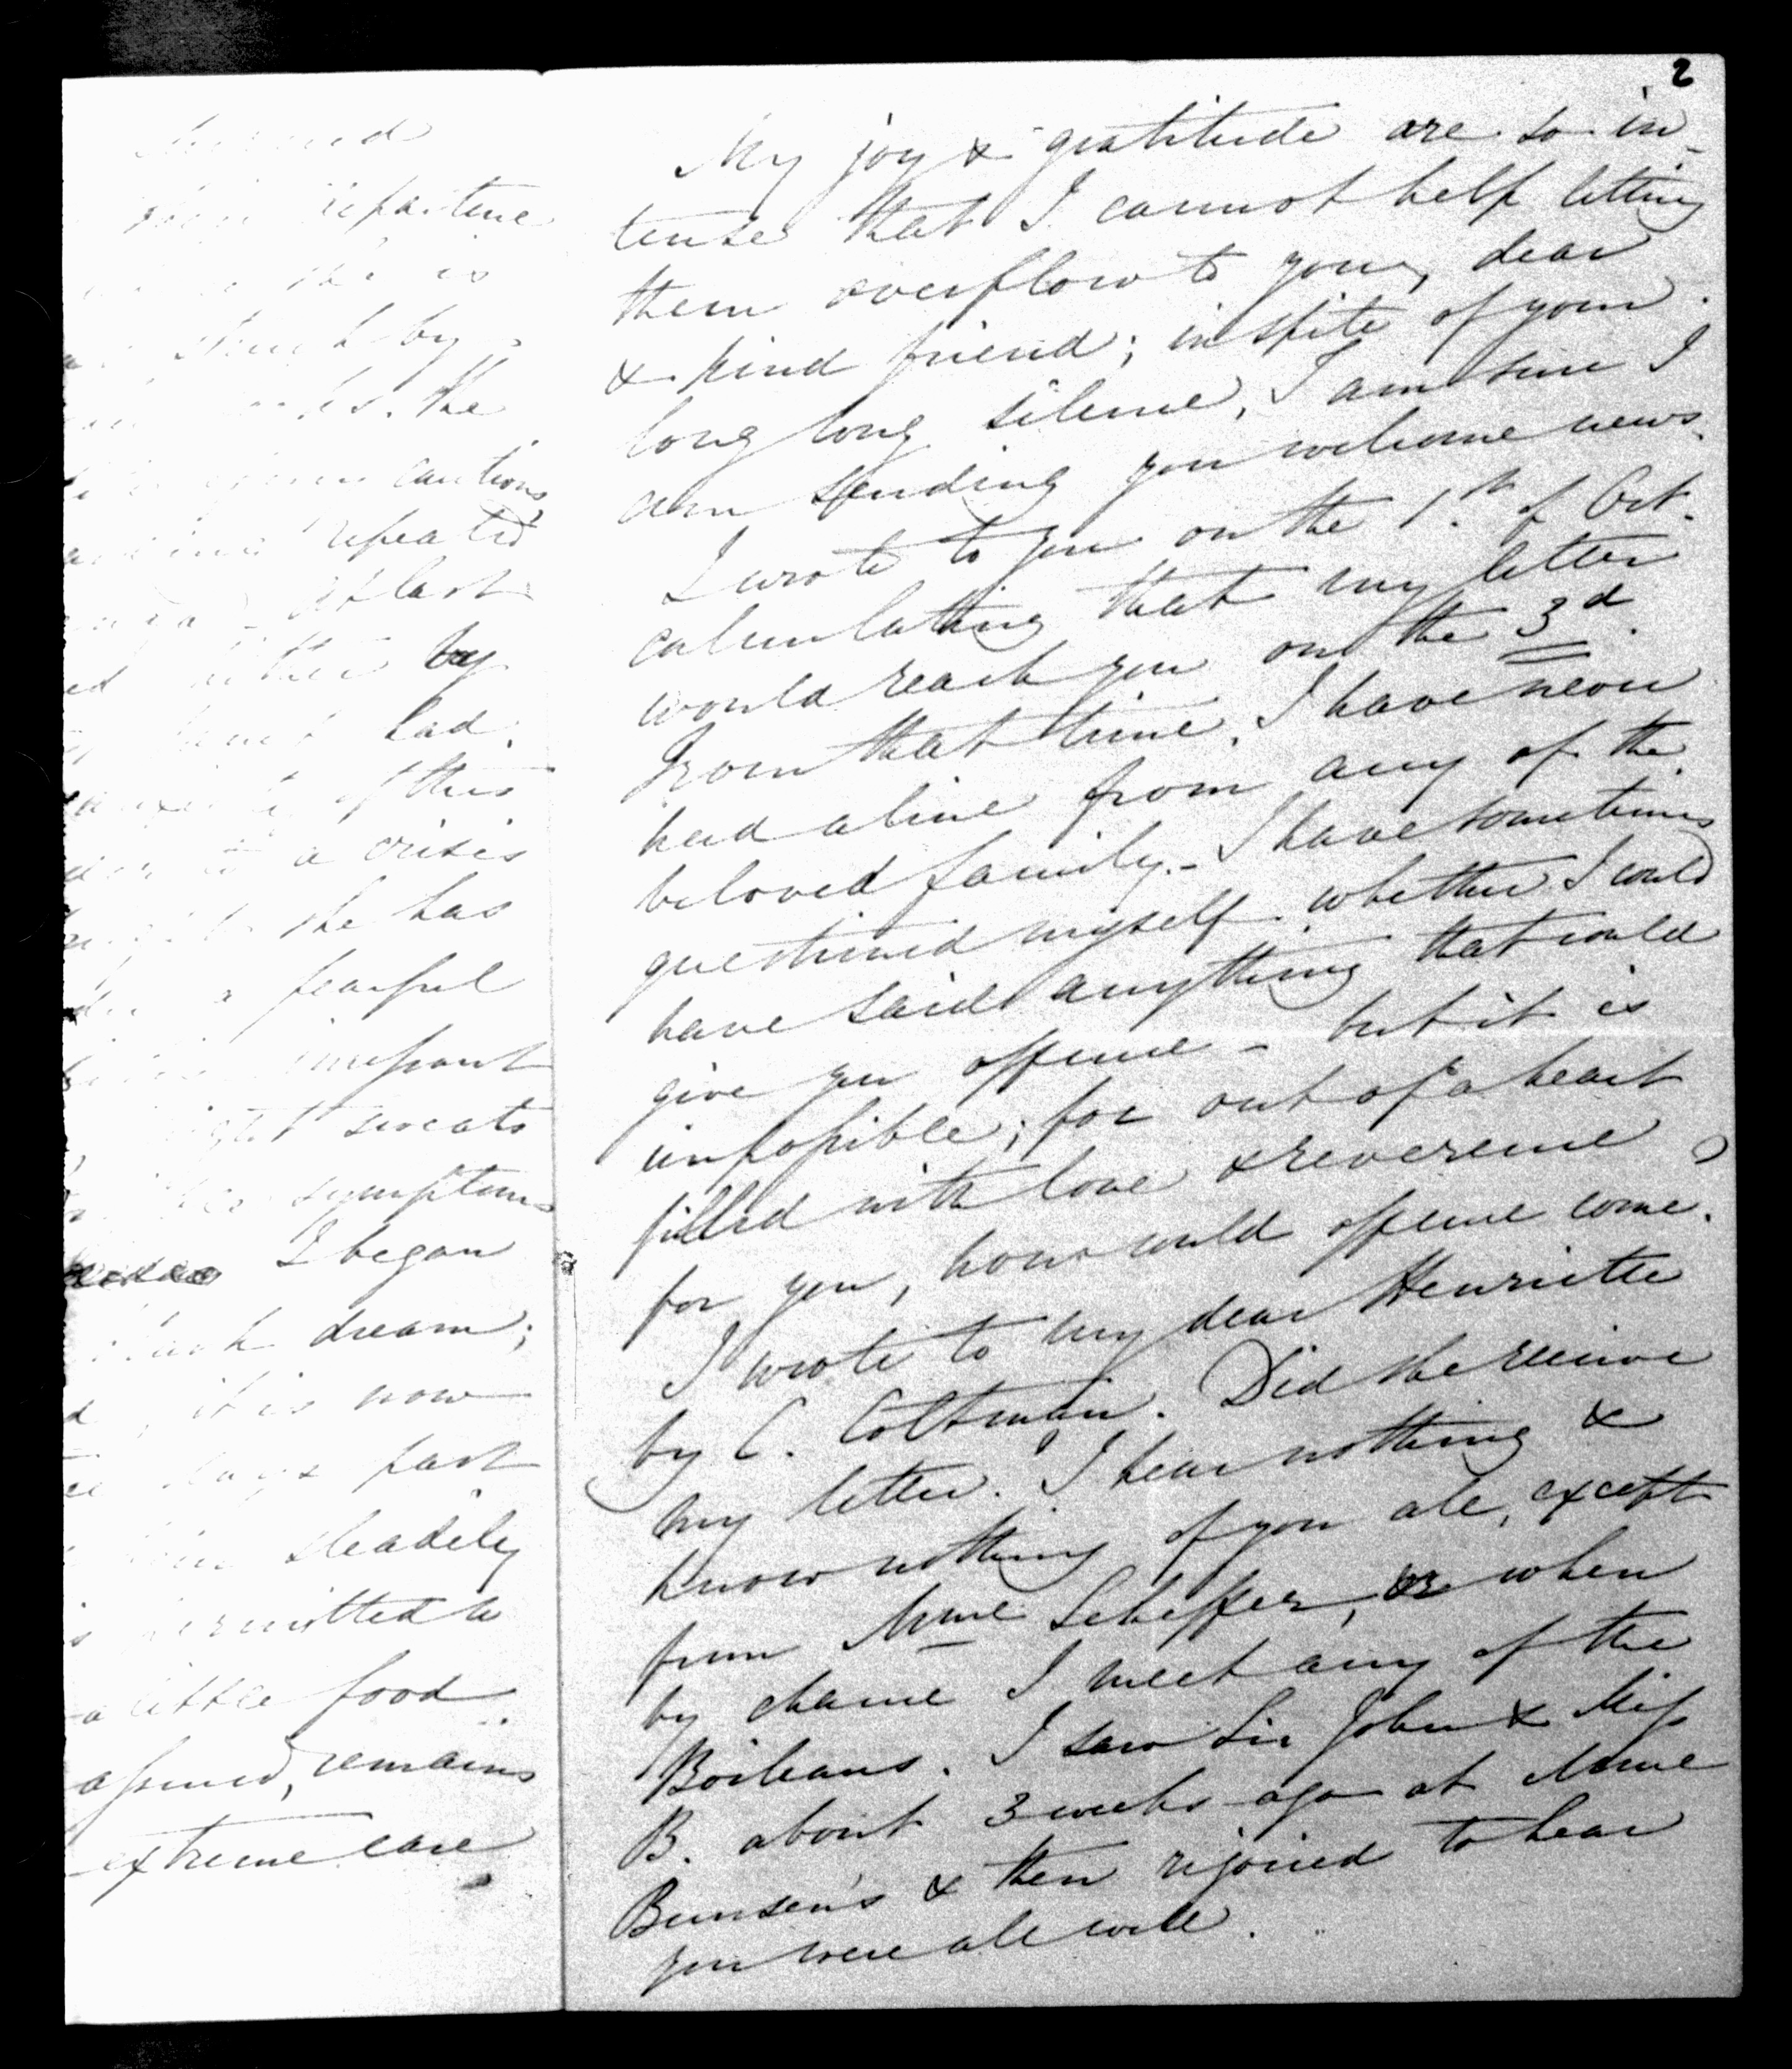 departure
is
by
the
cautions
repeated
at last
by
had
of this
a crisis
she has
fearful
incessant
sweats
symptoms
I began
dream;
it is now
days past
steadily
permitted to
a little food
assured, remains
extreme care
2
My joy & gratitude are so in-
tense that I cannot help letting
them overflow to you, dear
& kind friend; in spite of your
long long silence, I am sure I
am sending you welcome news.
I wrote to you on the 1.st of Oct.
calculating that my letter
would reach you on the 3d.
From that time, I have never
had a line from any of the
beloved family. - I have sometimes
questioned myself whether I could
have said anything that could
give you offence - but it is
impossible; for out of a heart
filled with love & reverence
for you, how could offence come.
I wrote to my dear Henriette
by C. Coltman. Did she receive
my letter. I hear nothing &
know nothing of you all, except
from Mme Scheffer, or when
by chance I meet any of the
Boileaus. I saw Sir John & Miss
B. about 3 weeks ago at Mme
Bunsen's & then rejoiced to hear
you were all well.